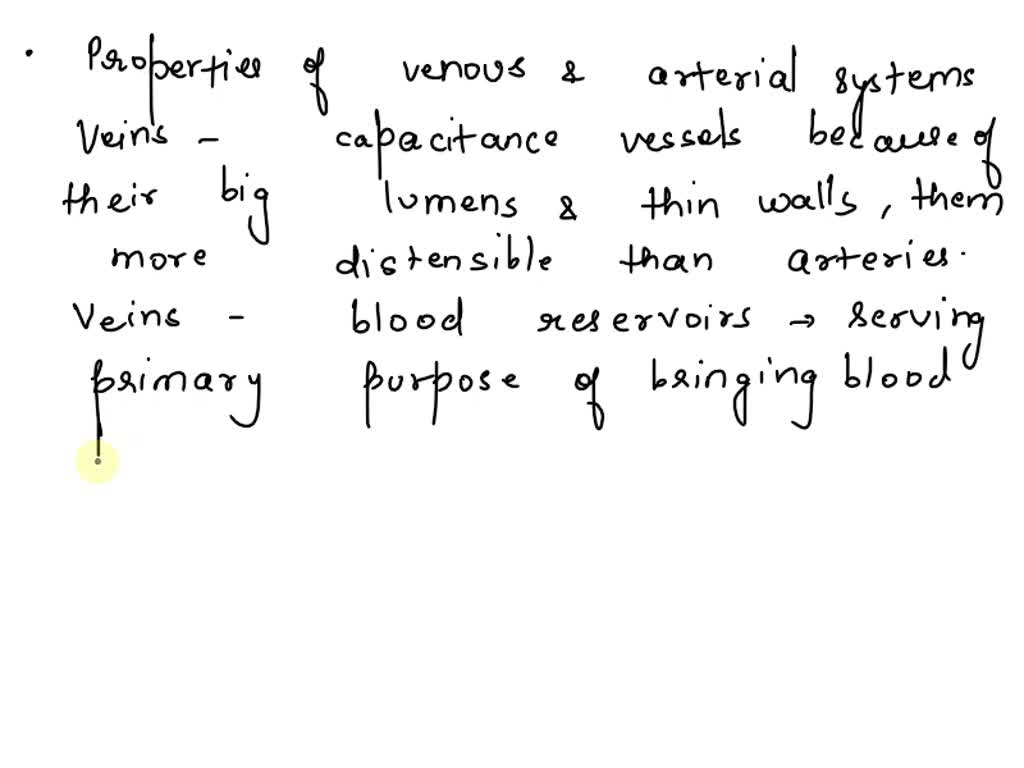 • Properties of venous & arterial systems
Veins - capacitance vessels because of
their big lumens & thin walls, them
more distensible than arteries.
Veins - blood reservoirs → serving
primary purpose of bringing blood